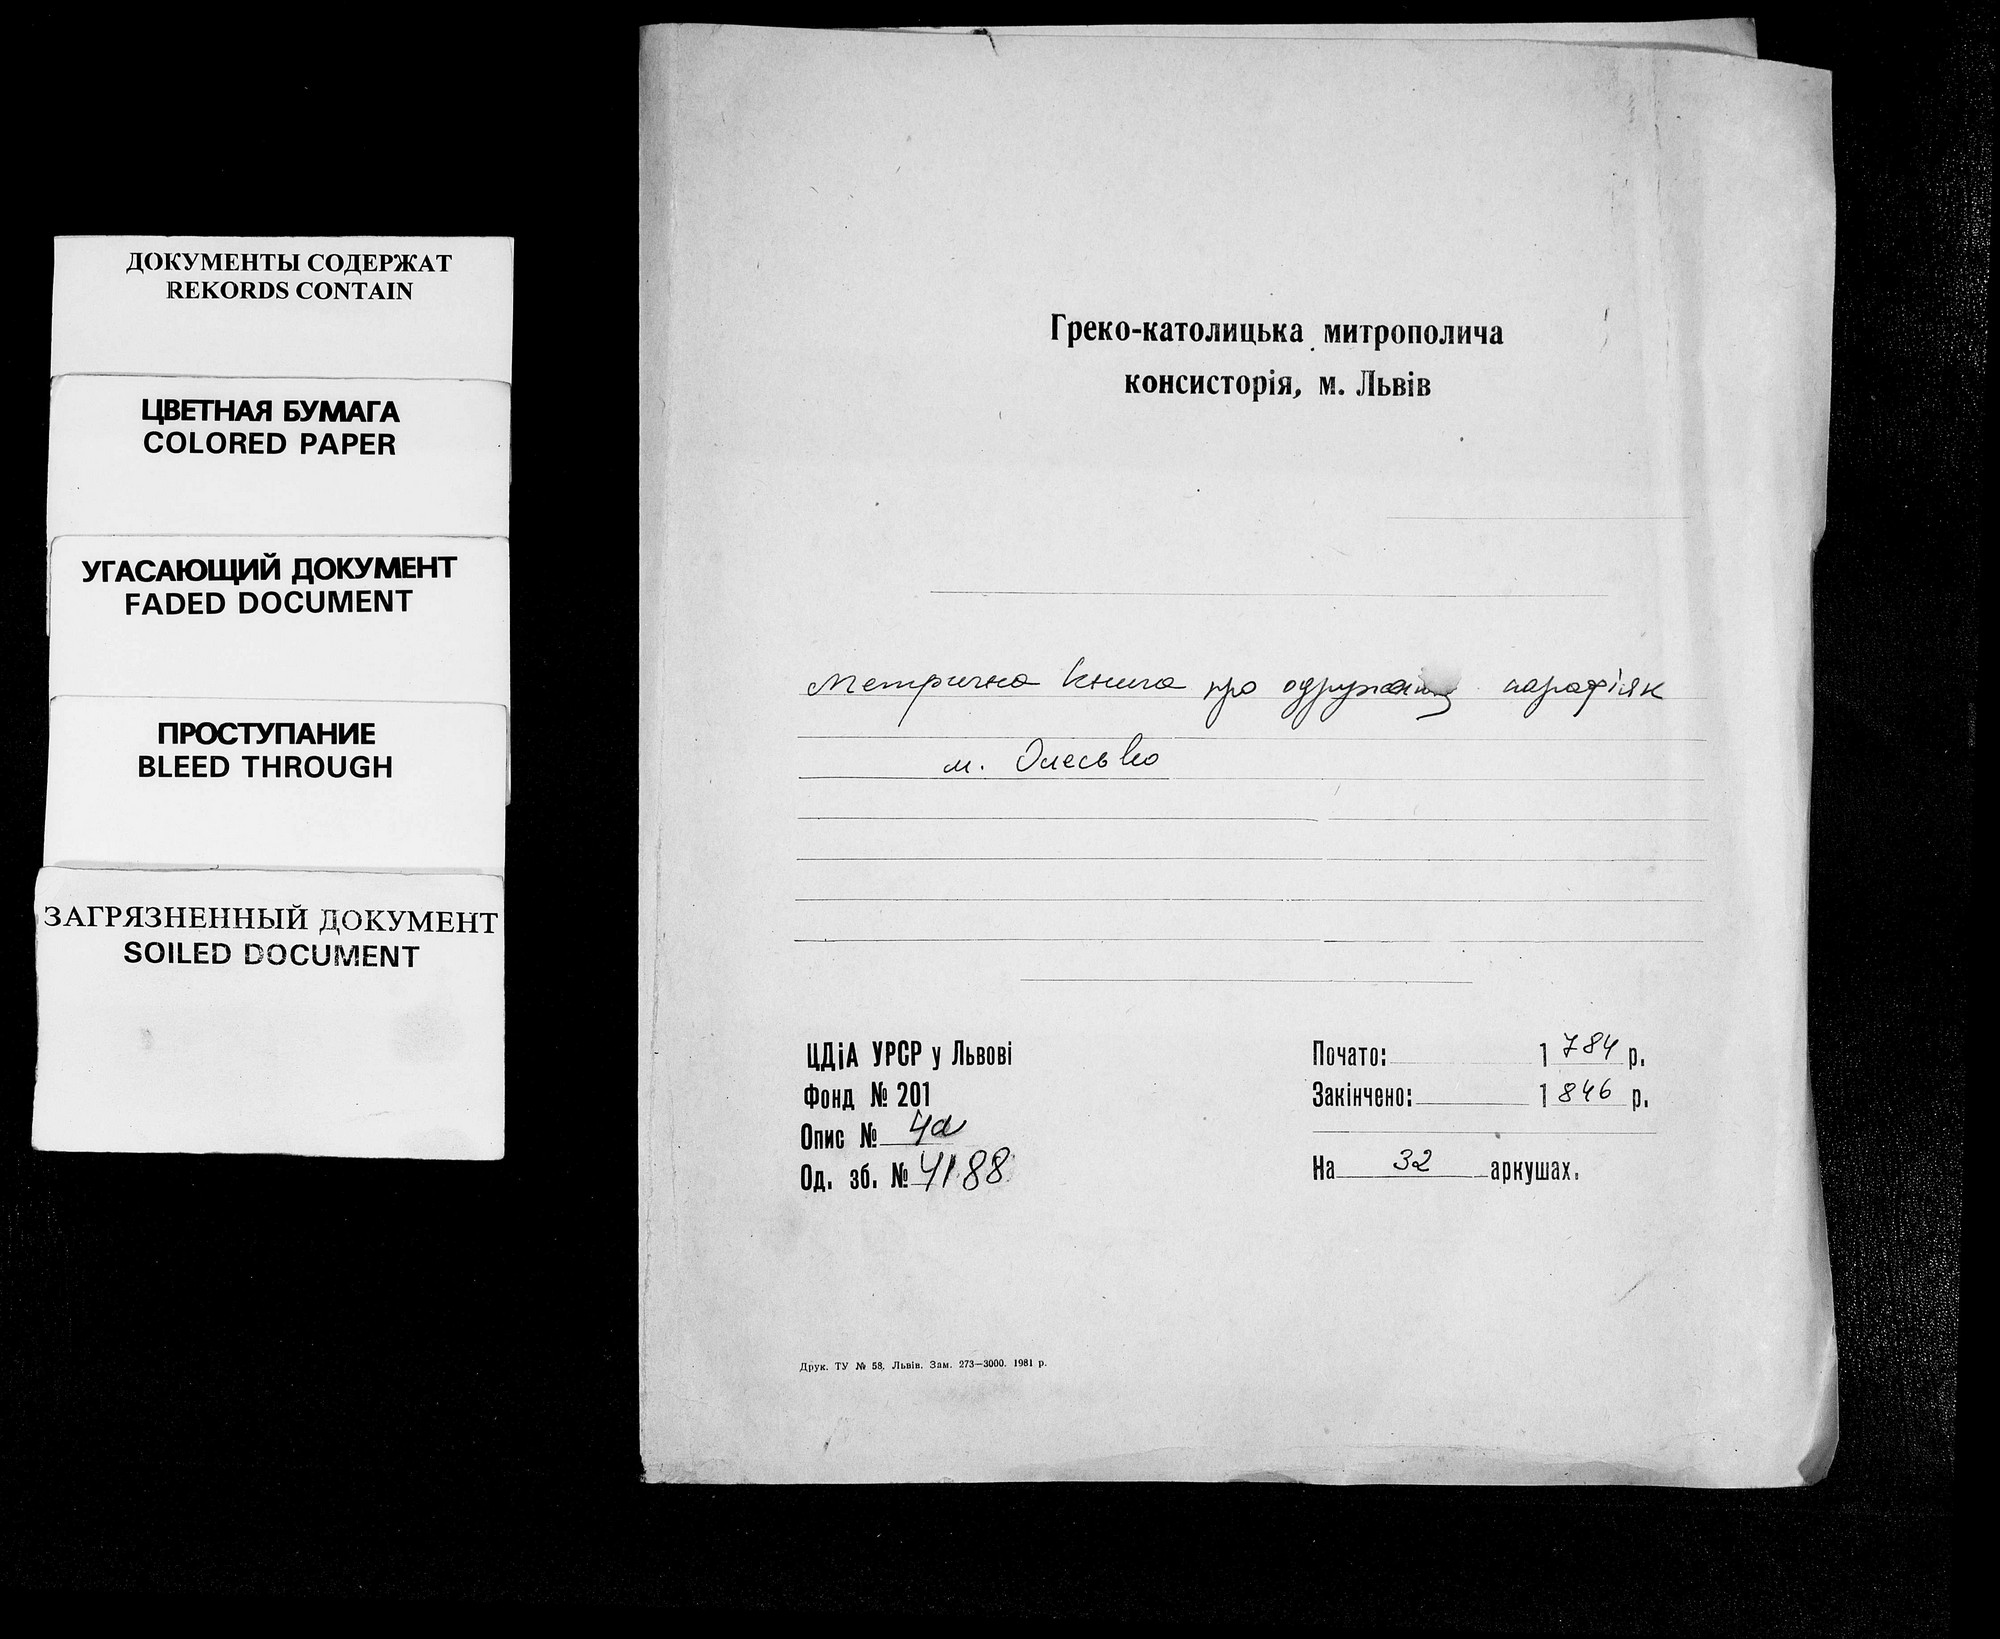 ДОКУМЕНТЫ СОДЕРЖАТ
REKORDS CONTAIN
ЦВЕТНАЯ БУМАГА
COLORED PAPER
УГАСАЮЩИЙ ДОКУМЕНТ
FADED DOCUMENT
ПРОСТУПАНИЕ
BLEED THROUGH
ЗАГРЯЗНЕННЫЙ ДОКУМЕНТ
SOILED DOCUMENT
Греко-католицька митрополича
консисторія, м. Львів
Метрична книга про парафіян
м. Олесько
ЦДіА УРСР у Львові
Фонд № 201
Опис № 4а
Од. зб. № 4188
Почато: 1784 р.
Закінчено: 1846 р.
На 32 аркушах.
Друк. ТУ № 58. Львів. Зам. 273—3000. 1981 р.